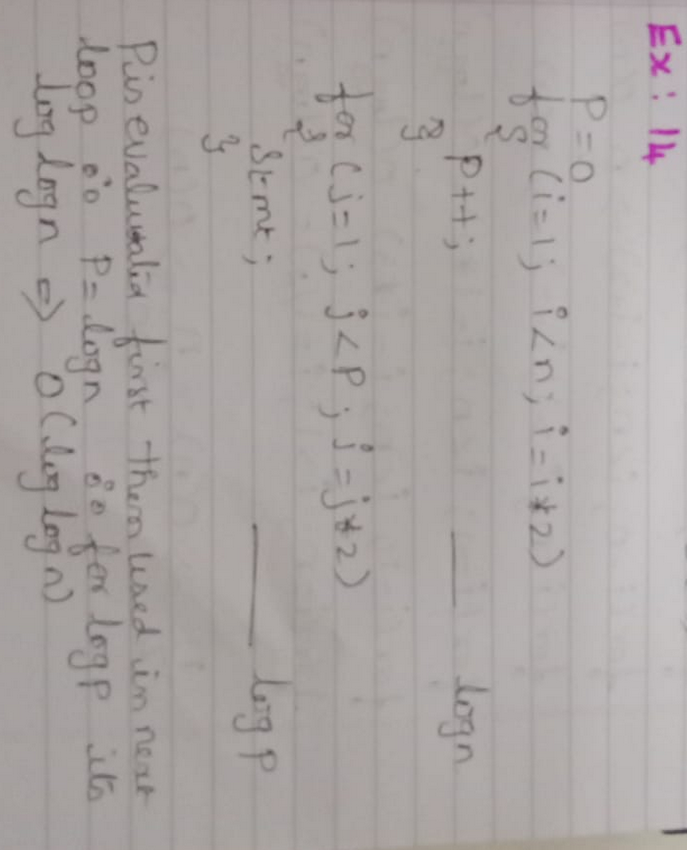 Ex: 14
P=0
for (i=1; i<n; i=i*2)
{
P++; — logn
}
for (j=1; j<P; j=j*2)
{
Stmt; — log P
}
P is evaluated first then used in next
loop ∴ P=logn ∴ for log P its
log logn ⇒ O(log logn)